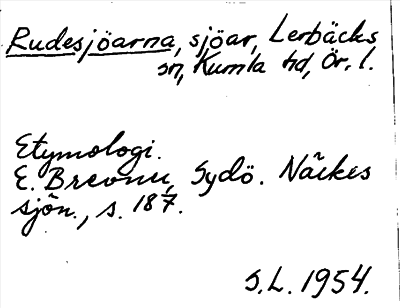 Rudesjöarna, sjöar, Lerbäcks
sn, Kumla hd, Ör. l.
Etymologi.
E. Brevner, Sydö. Närkes
sjön., s. 187.
S.L. 1954.